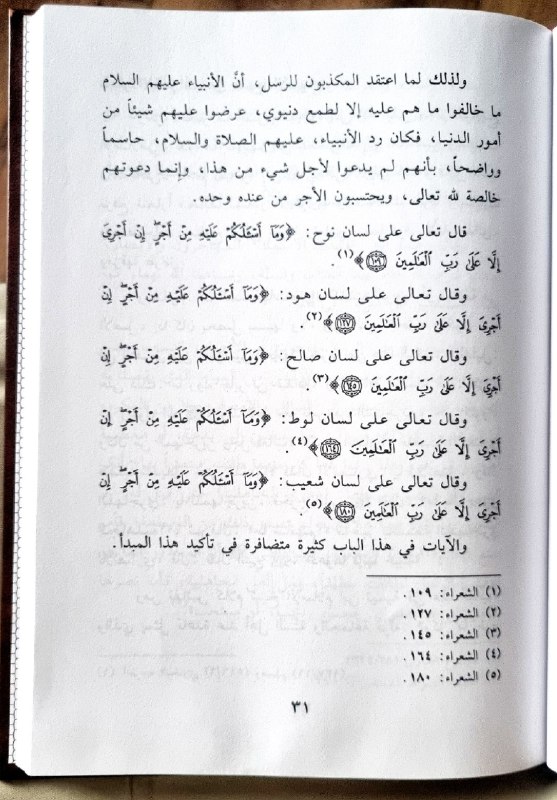 ولذلك لما اعتقد المكذبون للرسل، أنَّ الأنبياء عليهم السلام
ما خالفوا ما هم عليه إلا لطمع دنيوي، عرضوا عليهم شيئاً من
أمور الدنيا، فكان رد الأنبياء، عليهم الصلاة والسلام، حاسماً
وواضحاً، بأنهم لم يدعوا لأجل شيء من هذا، وإنما دعوتهم
خالصة لله تعالى، ويحتسبون الأجر من عنده وحده.
قال تعالى على لسان نوح: ﴿وَمَآ أَسْـَٔلُكُمْ عَلَيْهِ مِنْ أَجْرٍۖ إِنْ أَجْرِىَ
إِلَّا عَلَىٰ رَبِّ ٱلْعَـٰلَمِينَ ١٠٩﴾(١).
وقال تعالى على لسان هود: ﴿وَمَآ أَسْـَٔلُكُمْ عَلَيْهِ مِنْ أَجْرٍۖ إِنْ
أَجْرِىَ إِلَّا عَلَىٰ رَبِّ ٱلْعَـٰلَمِينَ ١٢٧﴾(٢).
وقال تعالى على لسان صالح: ﴿وَمَآ أَسْـَٔلُكُمْ عَلَيْهِ مِنْ أَجْرٍۖ إِنْ
أَجْرِىَ إِلَّا عَلَىٰ رَبِّ ٱلْعَـٰلَمِينَ ١٤٥﴾(٣).
وقال تعالى على لسان لوط: ﴿وَمَآ أَسْـَٔلُكُمْ عَلَيْهِ مِنْ أَجْرٍۖ إِنْ
أَجْرِىَ إِلَّا عَلَىٰ رَبِّ ٱلْعَـٰلَمِينَ ١٦٤﴾(٤).
وقال تعالى على لسان شعيب: ﴿وَمَآ أَسْـَٔلُكُمْ عَلَيْهِ مِنْ أَجْرٍۖ إِنْ
أَجْرِىَ إِلَّا عَلَىٰ رَبِّ ٱلْعَـٰلَمِينَ ١٨٠﴾(٥).
والآيات في هذا الباب كثيرة متضافرة في تأكيد هذا المبدأ.
(١) الشعراء: ١٠٩.
(٢) الشعراء: ١٢٧.
(٣) الشعراء: ١٤٥.
(٤) الشعراء: ١٦٤.
(٥) الشعراء: ١٨٠.
٣١